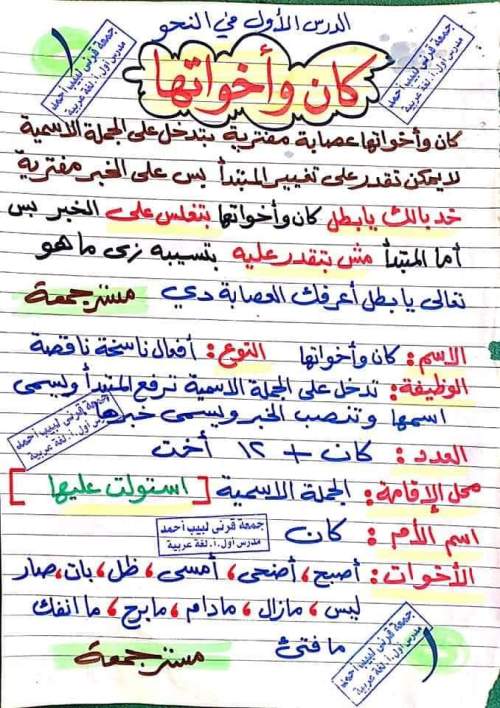 الدرس الأول في النحو
١
جمعة قرني لبيب أحمد
مدرس أول أ. لغة عربية
جمعة قرني لبيب أحمد
مدرس أول أ. لغة عربية
كان وأخواتها
كان وأخواتها عصابة مفترية بتدخل على الجملة الاسمية
لايمكن تقدر على تغيير المبتدأ بس على الخبر مفترية
خد بالك يابطل كان وأخواتها بتفلس على الخبر بس
أما المبتدأ مش بتقدر عليه بتسيبه زى ما هو
تعالى يابطل أعرفك العصابة دي مستر جمعة
الاسم: كان وأخواتها النوع: أفعال ناسخة ناقصة
الوظيفة: تدخل على الجملة الاسمية ترفع المبتدأ ويسمى
اسمها وتنصب الخبر ويسمى خبرها
جمعة قرني لبيب أحمد
مدرس أول أ. لغة عربية
العدد: كان + ١٢ أخت
محل الإقامة: الجملة الاسمية [ استولت عليها ]
اسم الأم: كان
جمعة قرني لبيب أحمد
مدرس أول أ. لغة عربية
الأخوات: أصبح، أضحى، أمسى، ظل، بات، صار
ليس، مازال، مادام، مابرح، ما انفك
ما فتئ
مستر جمعة
جمعة قرني لبيب أحمد
مدرس أول أ. لغة عربية
١